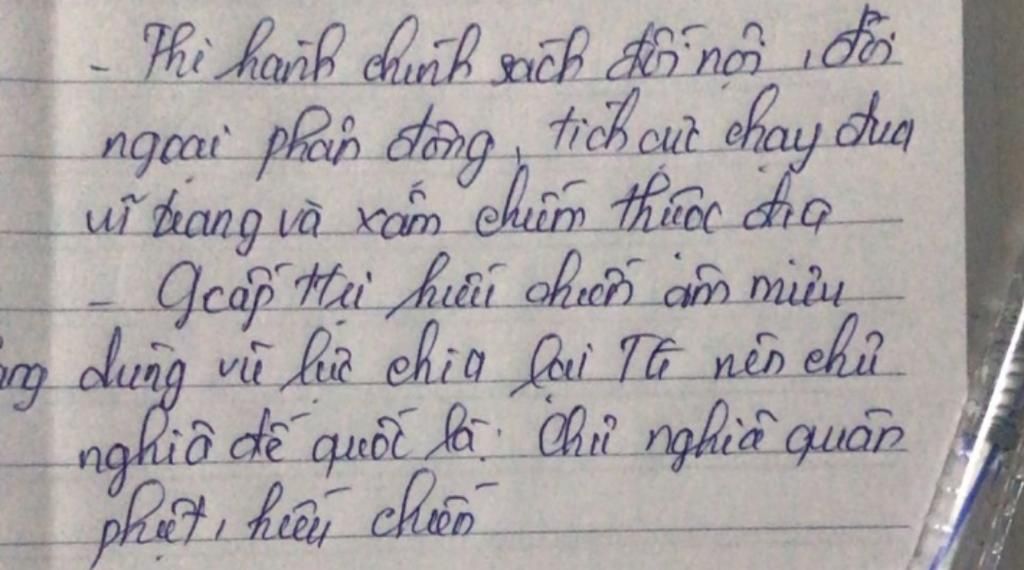 - Thi hành chính sách đối nội, đối
ngoại phản động, tích cực chạy đua
vũ trang và xâm chiếm thuộc địa
- Gcấp TS hiếu chiến âm mưu
ng dùng vũ lực chia lại TG nên chủ
nghĩa đế quốc là: Chủ nghĩa quân
phiệt, hiếu chiến